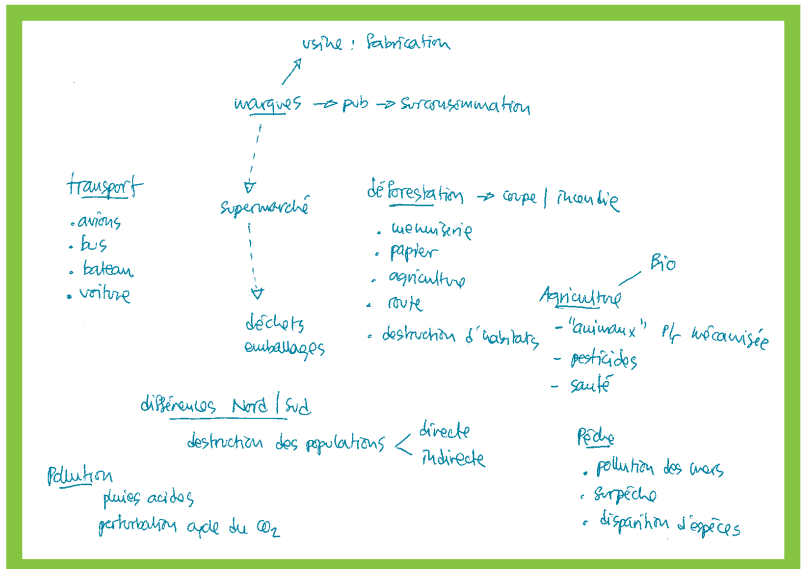 usine : fabrication
marques → pub → surconsommation
transport
• avions
• bus
• bateau
• voiture
supermarché
déchets
emballages
déforestation → coupe / incendie
• menuiserie
• papier
• agriculture
• route
• destruction d'habitats
Bio
Agriculture
- "animaux" mécanisée
- pesticides
- santé
différences Nord / Sud
destruction des populations < directe
indirecte
Pêche
• pollution des mers
• surpêche
• disparition d'espèces
Pollution
pluies acides
perturbation cycle du CO2